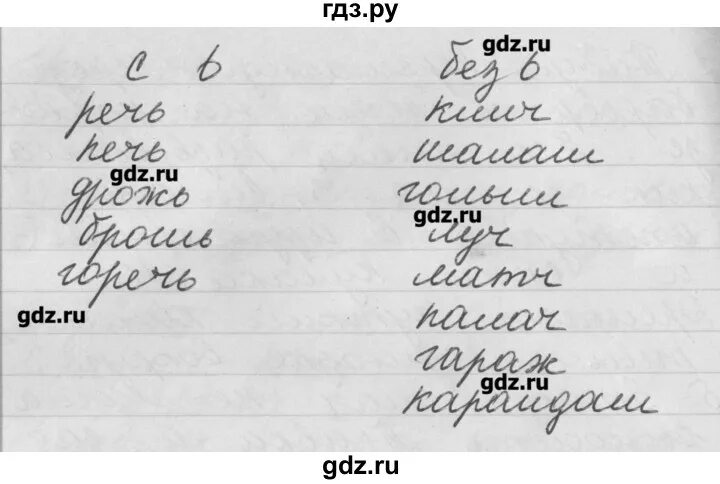 гдз.ру
с ь без ь
gdz.ru
речь клич
печь шалаш
gdz.ru
дрожь голыш
gdz.ru
брошь луч
горечь матч
gdz.ru палач
гараж
gdz.ru
карандаш
gdz.ru